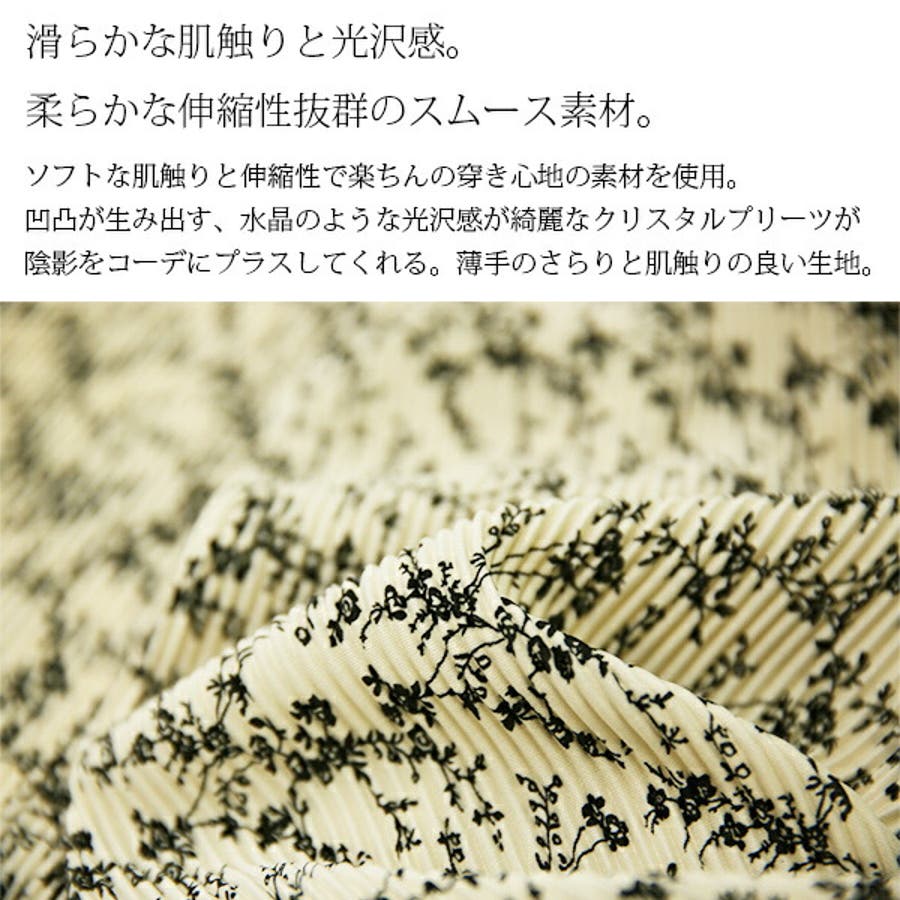 滑らかな肌触りと光沢感。
柔らかな伸縮性抜群のスムース素材。
ソフトな肌触りと伸縮性で楽ちんの穿き心地の素材を使用。
凹凸が生み出す、水晶のような光沢感が綺麗なクリスタルプリーツが
陰影をコーデにプラスしてくれる。薄手のさらりと肌触りの良い生地。